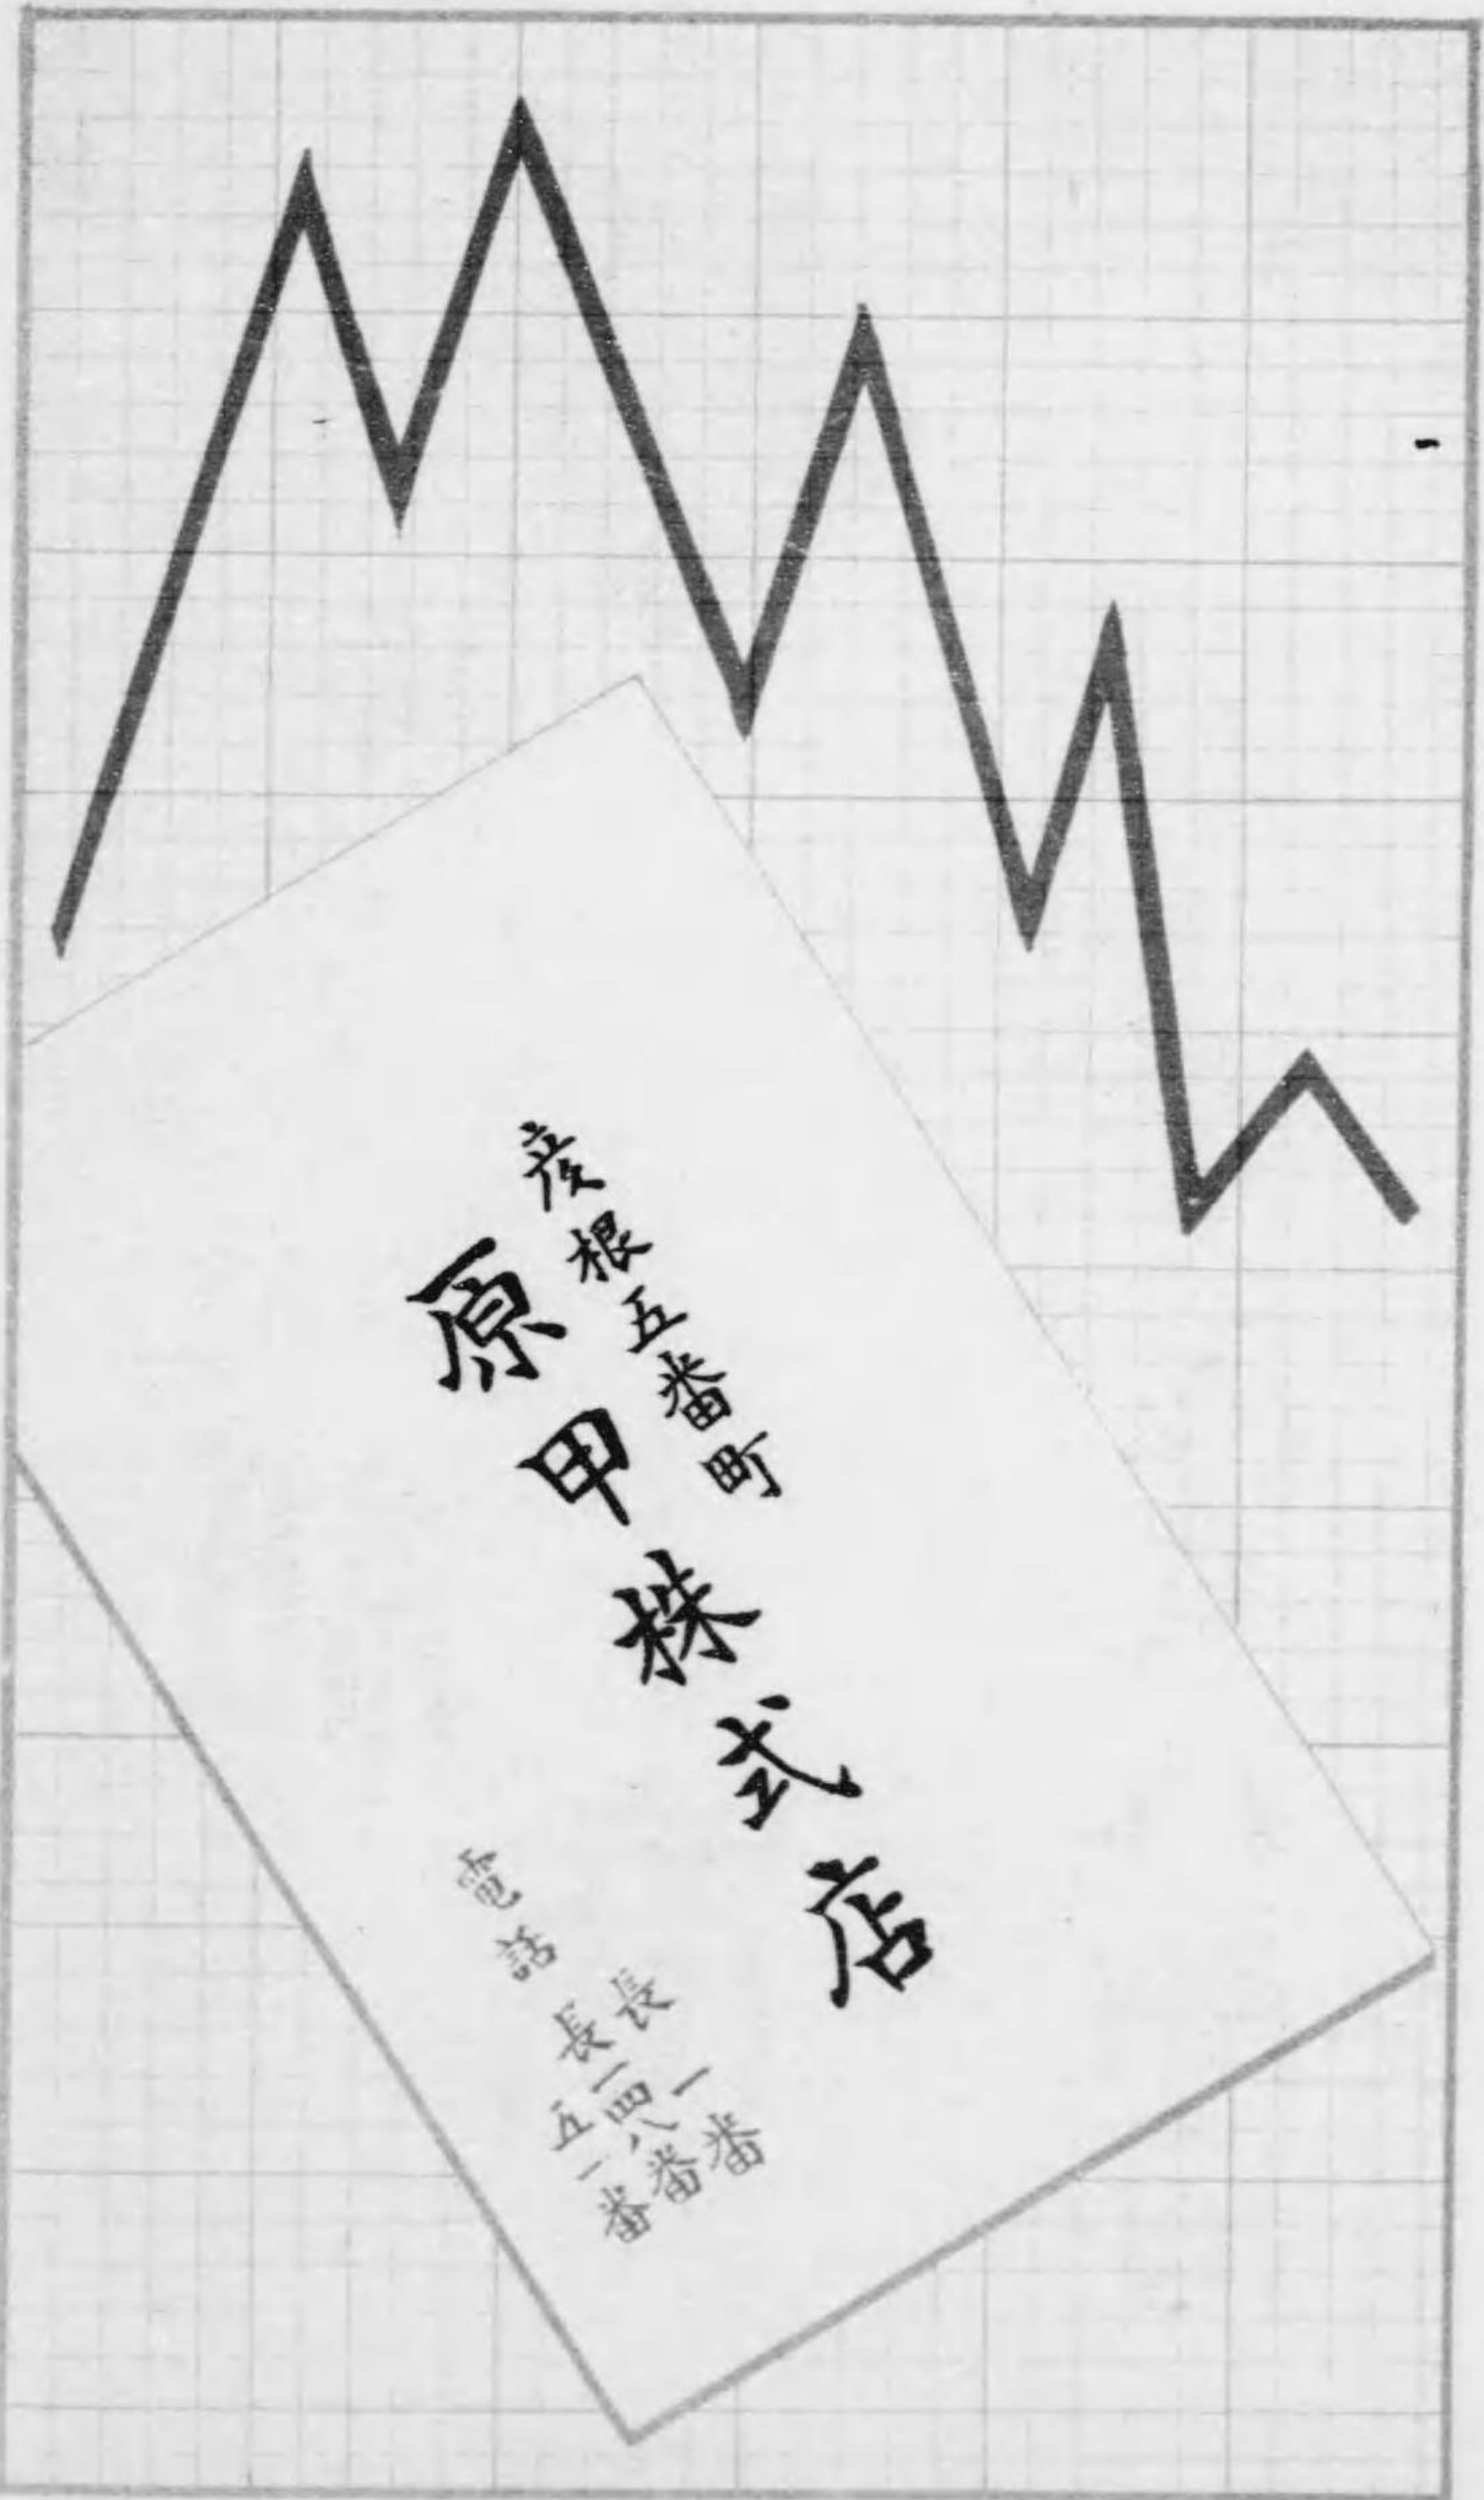 彦根五番町
原甲株式店
電話
長一番
長一四八番
五一番